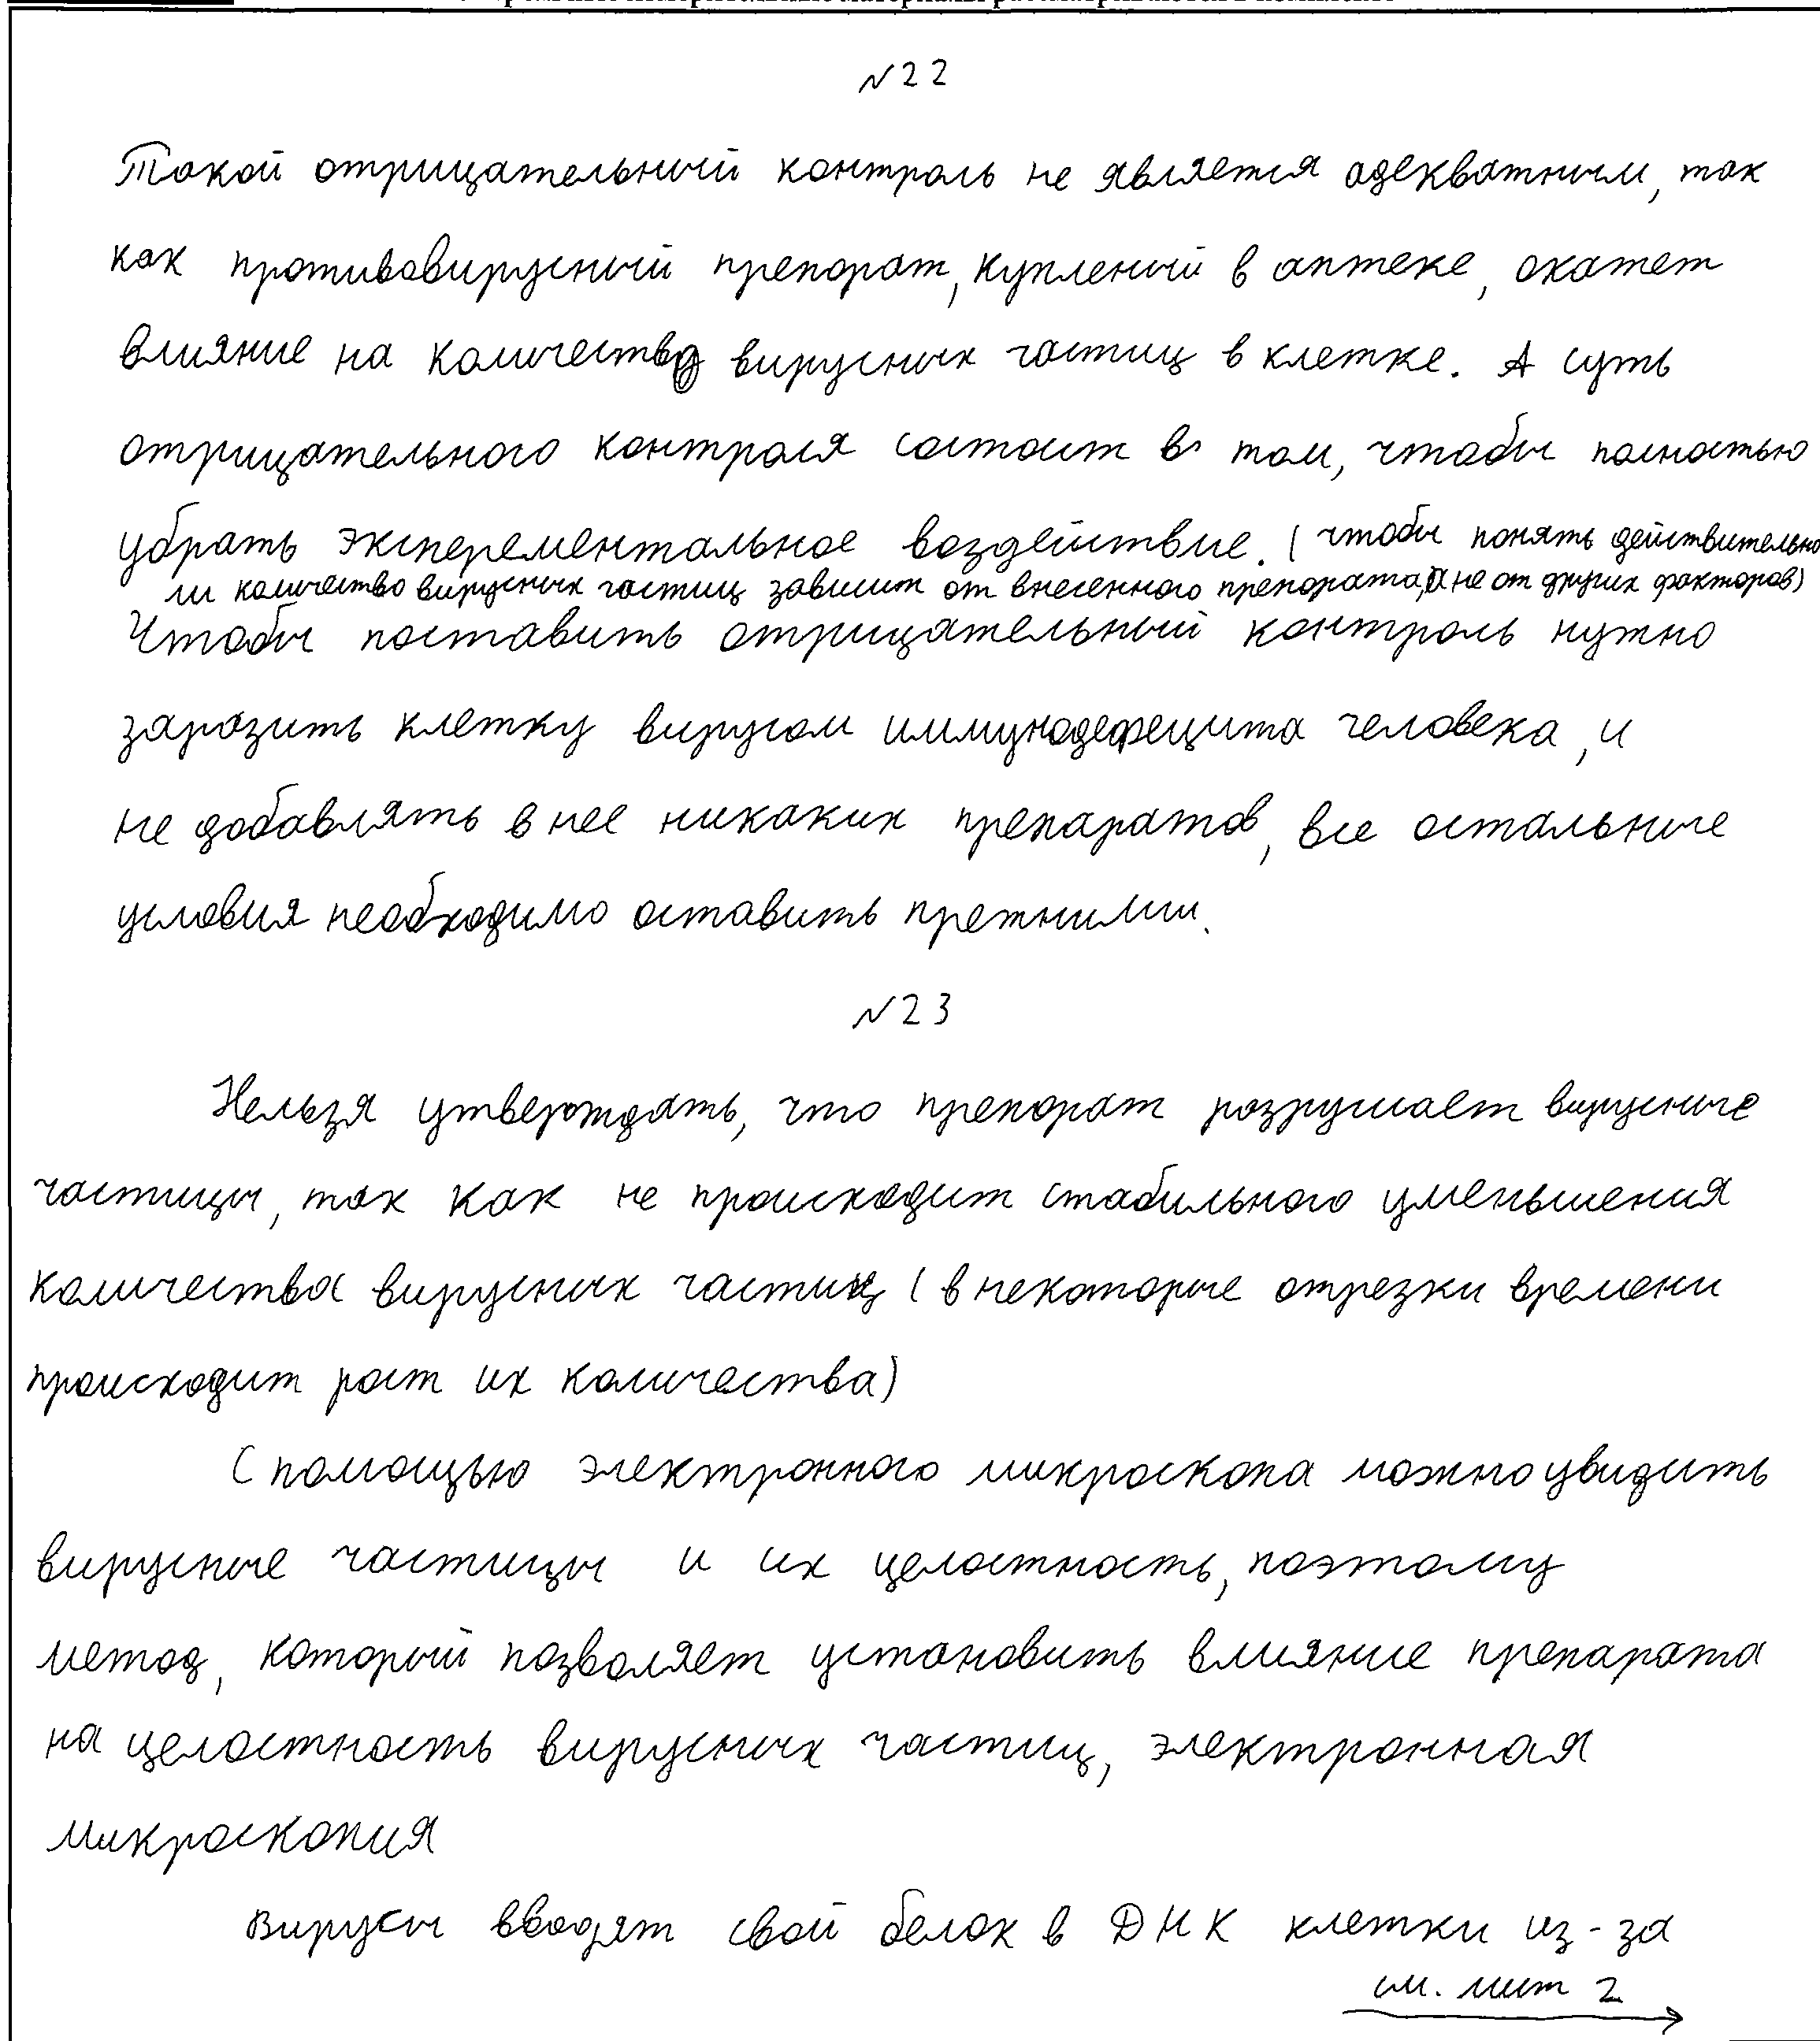 №22
Такой отрицательный контроль не является адекватным, так
как противовирусный препарат, купленый в аптеке, окажет
влияние на количество вирусных частиц в клетке. А суть
отрицательного контроля состоит в том, чтобы полностью
убрать эксперементальное воздействие. (чтобы понять действительно
ли количество вирусных частиц зависит от внесенного препарата, а не от других факторов)
Чтобы поставить отрицательный контроль нужно
заразить клетку вирусом иммунодефецита человека, и
не добавлять в нее никаких препаратов, все остальные
условия необходимо оставить прежними.
№23
Нельзя утверждать, что препарат разрушает вирусные
частицы, так как не происходит стабильного уменьшения
количества вирусных частиц (в некоторые отрезки времени
происходит рост их количества)
С помощью электронного микроскопа можно увидить
вирусные частицы и их целостность, поэтому
метод, который позволяет установить влияние препарата
на целостность вирусных частиц, электронная
микроскопия
Вирусы вводят свой белок в ДНК клетки из-за
см. лист 2